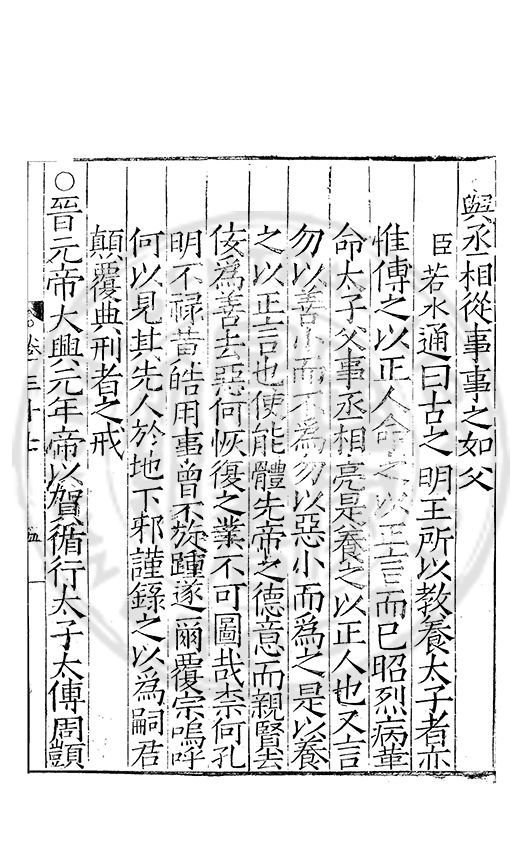 與丞相從事事之如父
臣若水通曰古之明王所以教養太子者亦
惟傅之以正人命之以正言而已昭烈病革
命太子父事丞相亮是養之以正人也又言
勿以善小而不為勿以惡小而為之是以養
之以正言也使能體先帝之德意而親賢去
佞為善去惡何恢復之業不可圖哉柰何孔
明不祿黃皓用事曾不旋踵遂爾覆宗嗚呼
何以見其先人於地下邪謹錄之以為嗣君
顛覆典刑者之戒
○晉元帝大興元年帝以賀循行太子太傅周顗
卷三十七 五